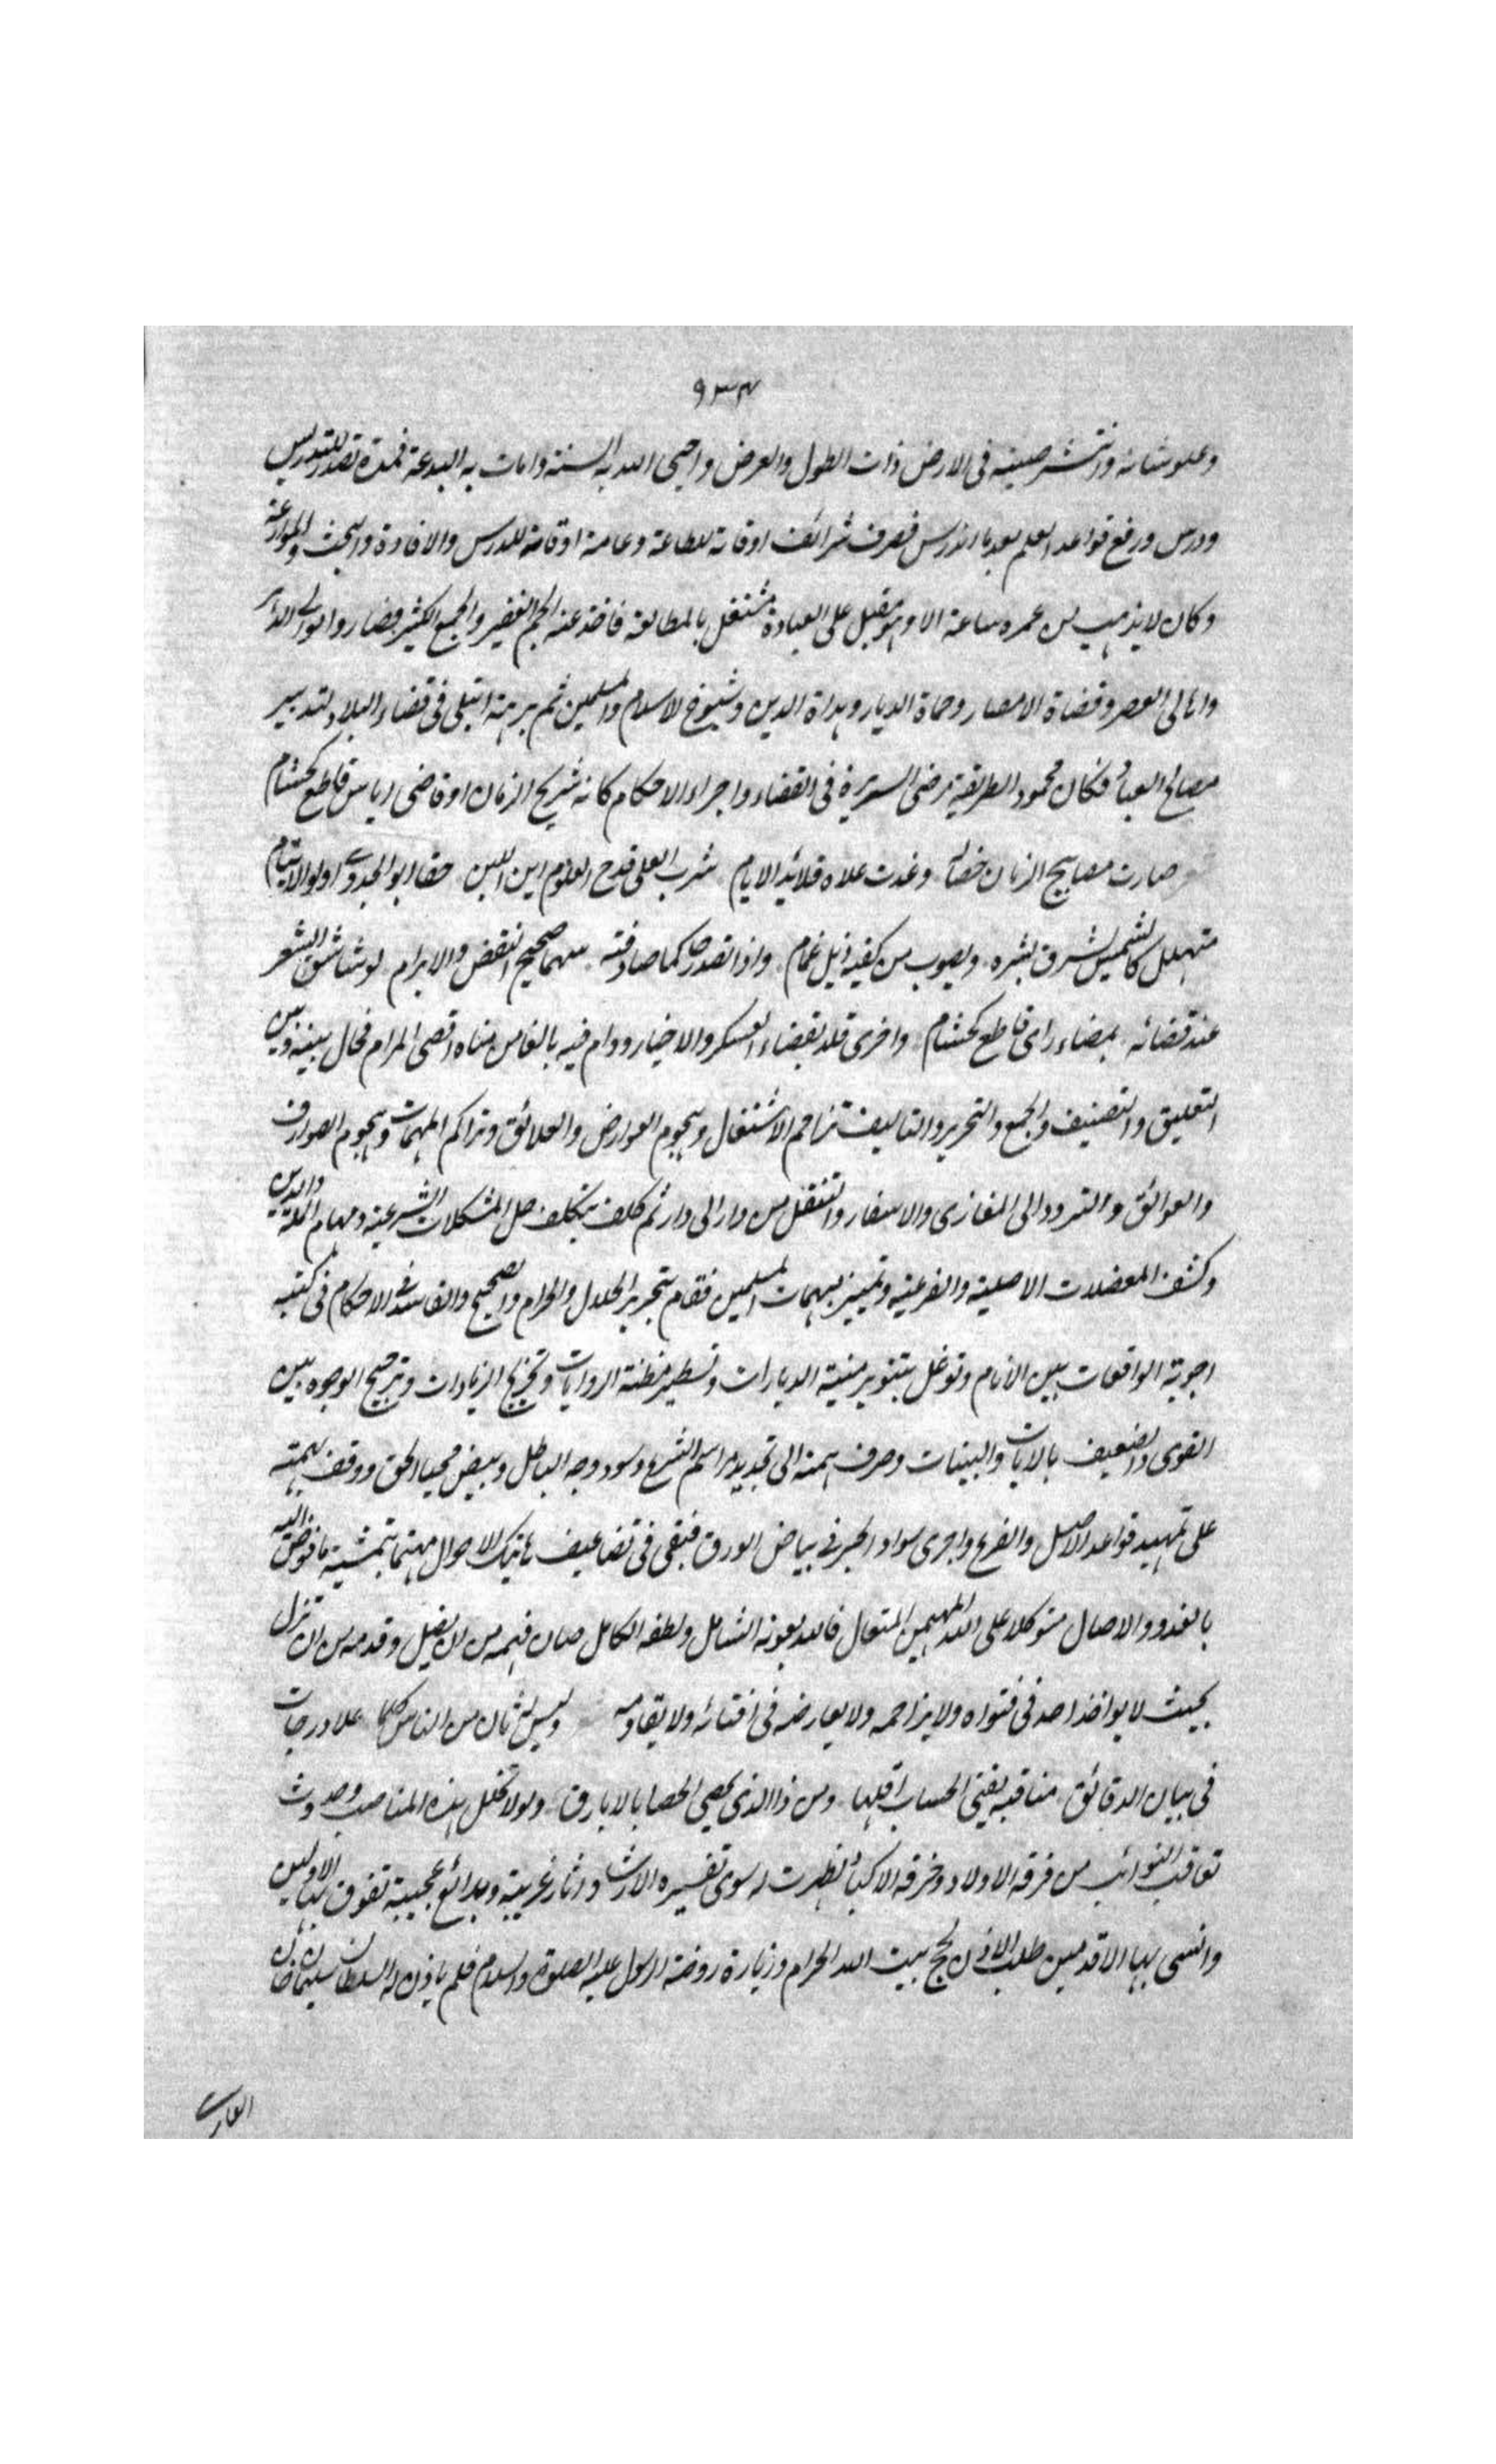 ٩٣٤
وعلو شانه وانتشر صيته فى الارض ذات الطول والعرض واحيى الله به السنة وامات به البدعة فمدة تصدر للتدريس
ودرس ورفع قواعد العلم بعد ما اندرس فصرف شرائف اوقاته للطاعة وعامة اوقاته للدرس والافادة والبحث والموازعة
وكان لا يذهب من عمره ساعة الا وهو مقبل على العبادة مشتغل بالمطالعة فاخذ عنه الجم الغفير والجمع الكثير فصاروا موالى الدهر
واهالى العصر وقضاة الامصار وحماة الديار وهداة الدين وشيوخ الاسلام والمسلمين ثم برهة ابتلى فى قضاء البلاد لتدبير
مصالح العباد فكان محمود الطريقة مرضى السيرة فى القضاء واجراء الاحكام كانه شريح الزمان او قاضى اياس قاطع كحسام
صارت مصابيح الزمان خصاله وغدت علاه قلائد الايام شرب العلى قدح العلوم اين اللبن حقا ابو الجدوى اولو الايتام
متهلل كالشمس يشرق بشره ويصوب من كفيه ذيل غمام واذا تصدر حاكما صادفته سهما صحيح النقض والابرام لو شا شق الشعر
عند قضائه بمضاء راى قاطع كحسام واخرى قلد بقضاء العسكر والاخيار ودام فيه بالغا من مناه اقصى المرام فحال بينه وبين
التعليق والتصنيف والجمع والتحرير والتاليف تزاحم الاشتغال وهجوم العوارض والعلائق وتراكم المهمات وهجوم الصوارف
والعوائق والتردد الى المغازى والاسفار والتنقل من دار الى دار ثم كلف بتكلف حل المشكلات الشرعية ومهام الملة والدين
وكشف المعضلات الاصلية والفرعية وتمييز مبهمات المسلمين فقام بتحرير الحلال والحرام والصحيح والفاسد فى الاحكام فى كتبه
اجوبة الواقعات بين الانام وتوغل بتنوير منية الديارات وتسطير مظنة الروايات وتخريج الزيادات وترجيح الوجوه بين
القوى والضعيف بالايات والبينات وصرف همته الى تجديد مراسم الشرع وسود وجه الباطل وبيض محيا الحق ووقف بهمته
على تمهيد قواعد الاصل والفرع واجرى سواد الحبر فى بياض الورق فبقى فى تضاعيف هاتيك الاحوال مهتما بتمشية ما فوض اليه
بالغدو والاصال متوكلا على الله المهيمن المتعال فالله بعونه الشامل ولطفه الكامل صان فهمه من ان يضل وقدمه من ان تزل
بحيث لا يواخذ احد فى فتواه ولا يزاحمه ولا يعارضه فى افتائه ولا يقاومه وليس لثان من الناس كلما علا درجات
فى بيان الدقائق مناقبه يفنى الحساب اقلها ومن ذا الذى يحصى الحصا بالابارق ولولا تخلل هذه المناصب وحدوث
تعاقب النوائب من فرقة الاولاد وحرقة الاكباد لظهرت له سوى تفسيره الارشاد اثار غريبة وبدائع عجيبة تفوق بها الاولين
وانسى بها الاقدمين طلب الاذن لحج بيت الله الحرام وزيارة روضة الرسول عليه الصلوة والسلام فلم ياذن له السلطان سليمان خان
الغازى